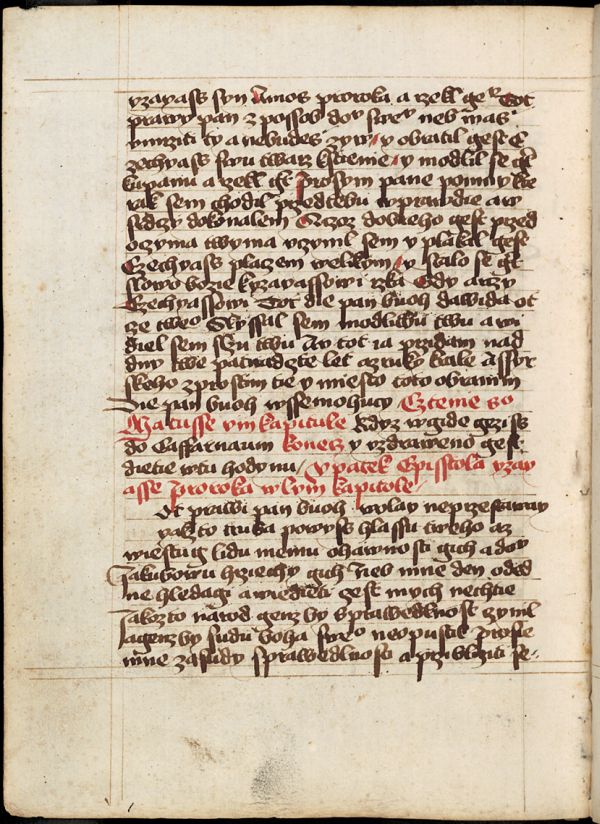 yzayass syn Amos proroka a rzekl gեmu Tot
prawy pan z possob dom swem neb mas
vmrziti ty a nebudes zyw / y obratil gest E
zechyass swu twarz k stienie / y modlil se gest
ku panu a rzekl gest Prosym pane pomny kte
rak sem chodil przed tebu w prawdie a w
srdczy dokonalem A czoz dobreho gest przed
oczyma twyma vczynil sem y plakal gest
Ezechyass placzem welikym / y stalo se gest
slowo bozie k yzayassowi rzka Gdy a rczy
Ezechyassowi Tot die pan buoh dawida ot
cze tweo Slyssal sem modlitwu twu a wi
diel sem slzu twu Ay tot ia przidam nad
dny twe patnadczte let a z ruky krale Assyr
skeho zprostim tie y miesto toto obranim
Die pan buoh wssemohucy / Cztenie so
Matusse viii kapitule Kdyz wgide gezis
do Caffarnaum konecz y vzdraweno gest
dietie w tu hodynu / V patek Episstola yzay
asse Proroka w lviii kapitole /
Ot prawi pan buoh wolay neprzestaway
yakzto truba powyss hlassu tweho a z
wiestug lidu memu ohawnosti gich a dom
Jakubowu hrziechy gich Neb mne den ode d
ne hledagi a wiedieti gest mych nechtie
Jakozto narod genz by sprawedlnost czynil
a genz by sudu boha sweo neopustil Prosie
mne za sudy sprawedlnosti a przibliziti se